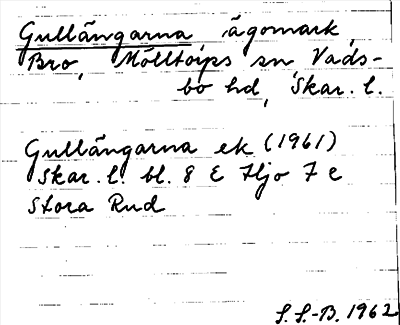 Gullängarna ägomark,
Bro, Mölltorps sn Vads-
bo hd, Skar. l.
Gullängarna ek (1961)
Skar. l. bl. 8 E Hjo 7 e
Stora Rud
S. S.-B. 1962